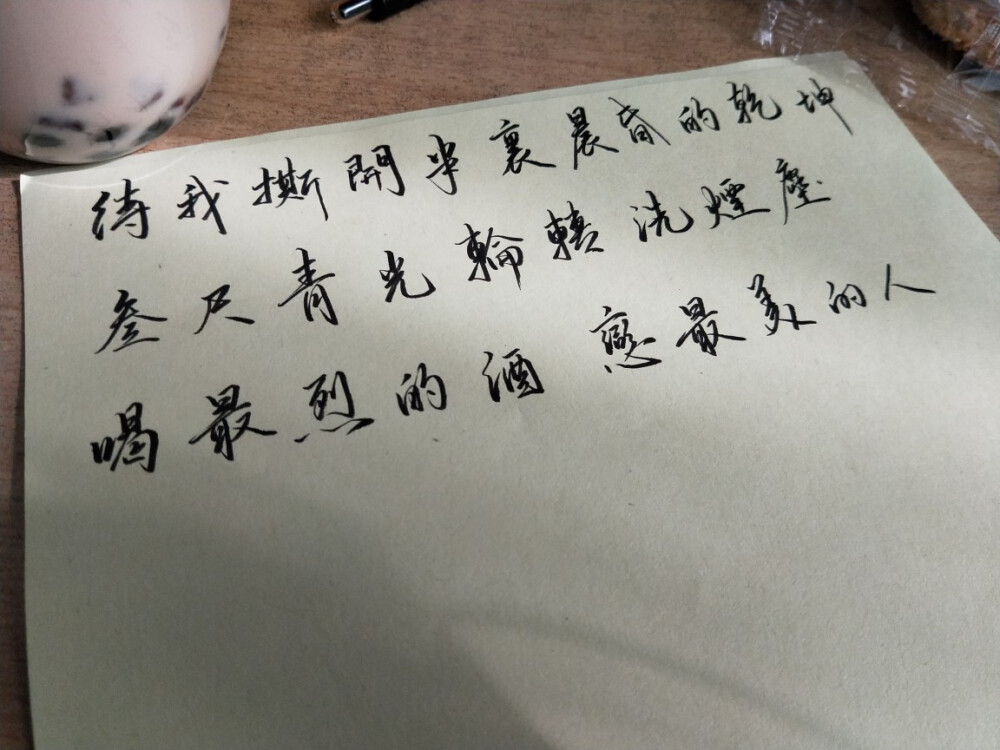 待我撕開半裏晨昏的乾坤
叄尺青光輪轉洗煙塵
喝最烈的酒 戀最美的人